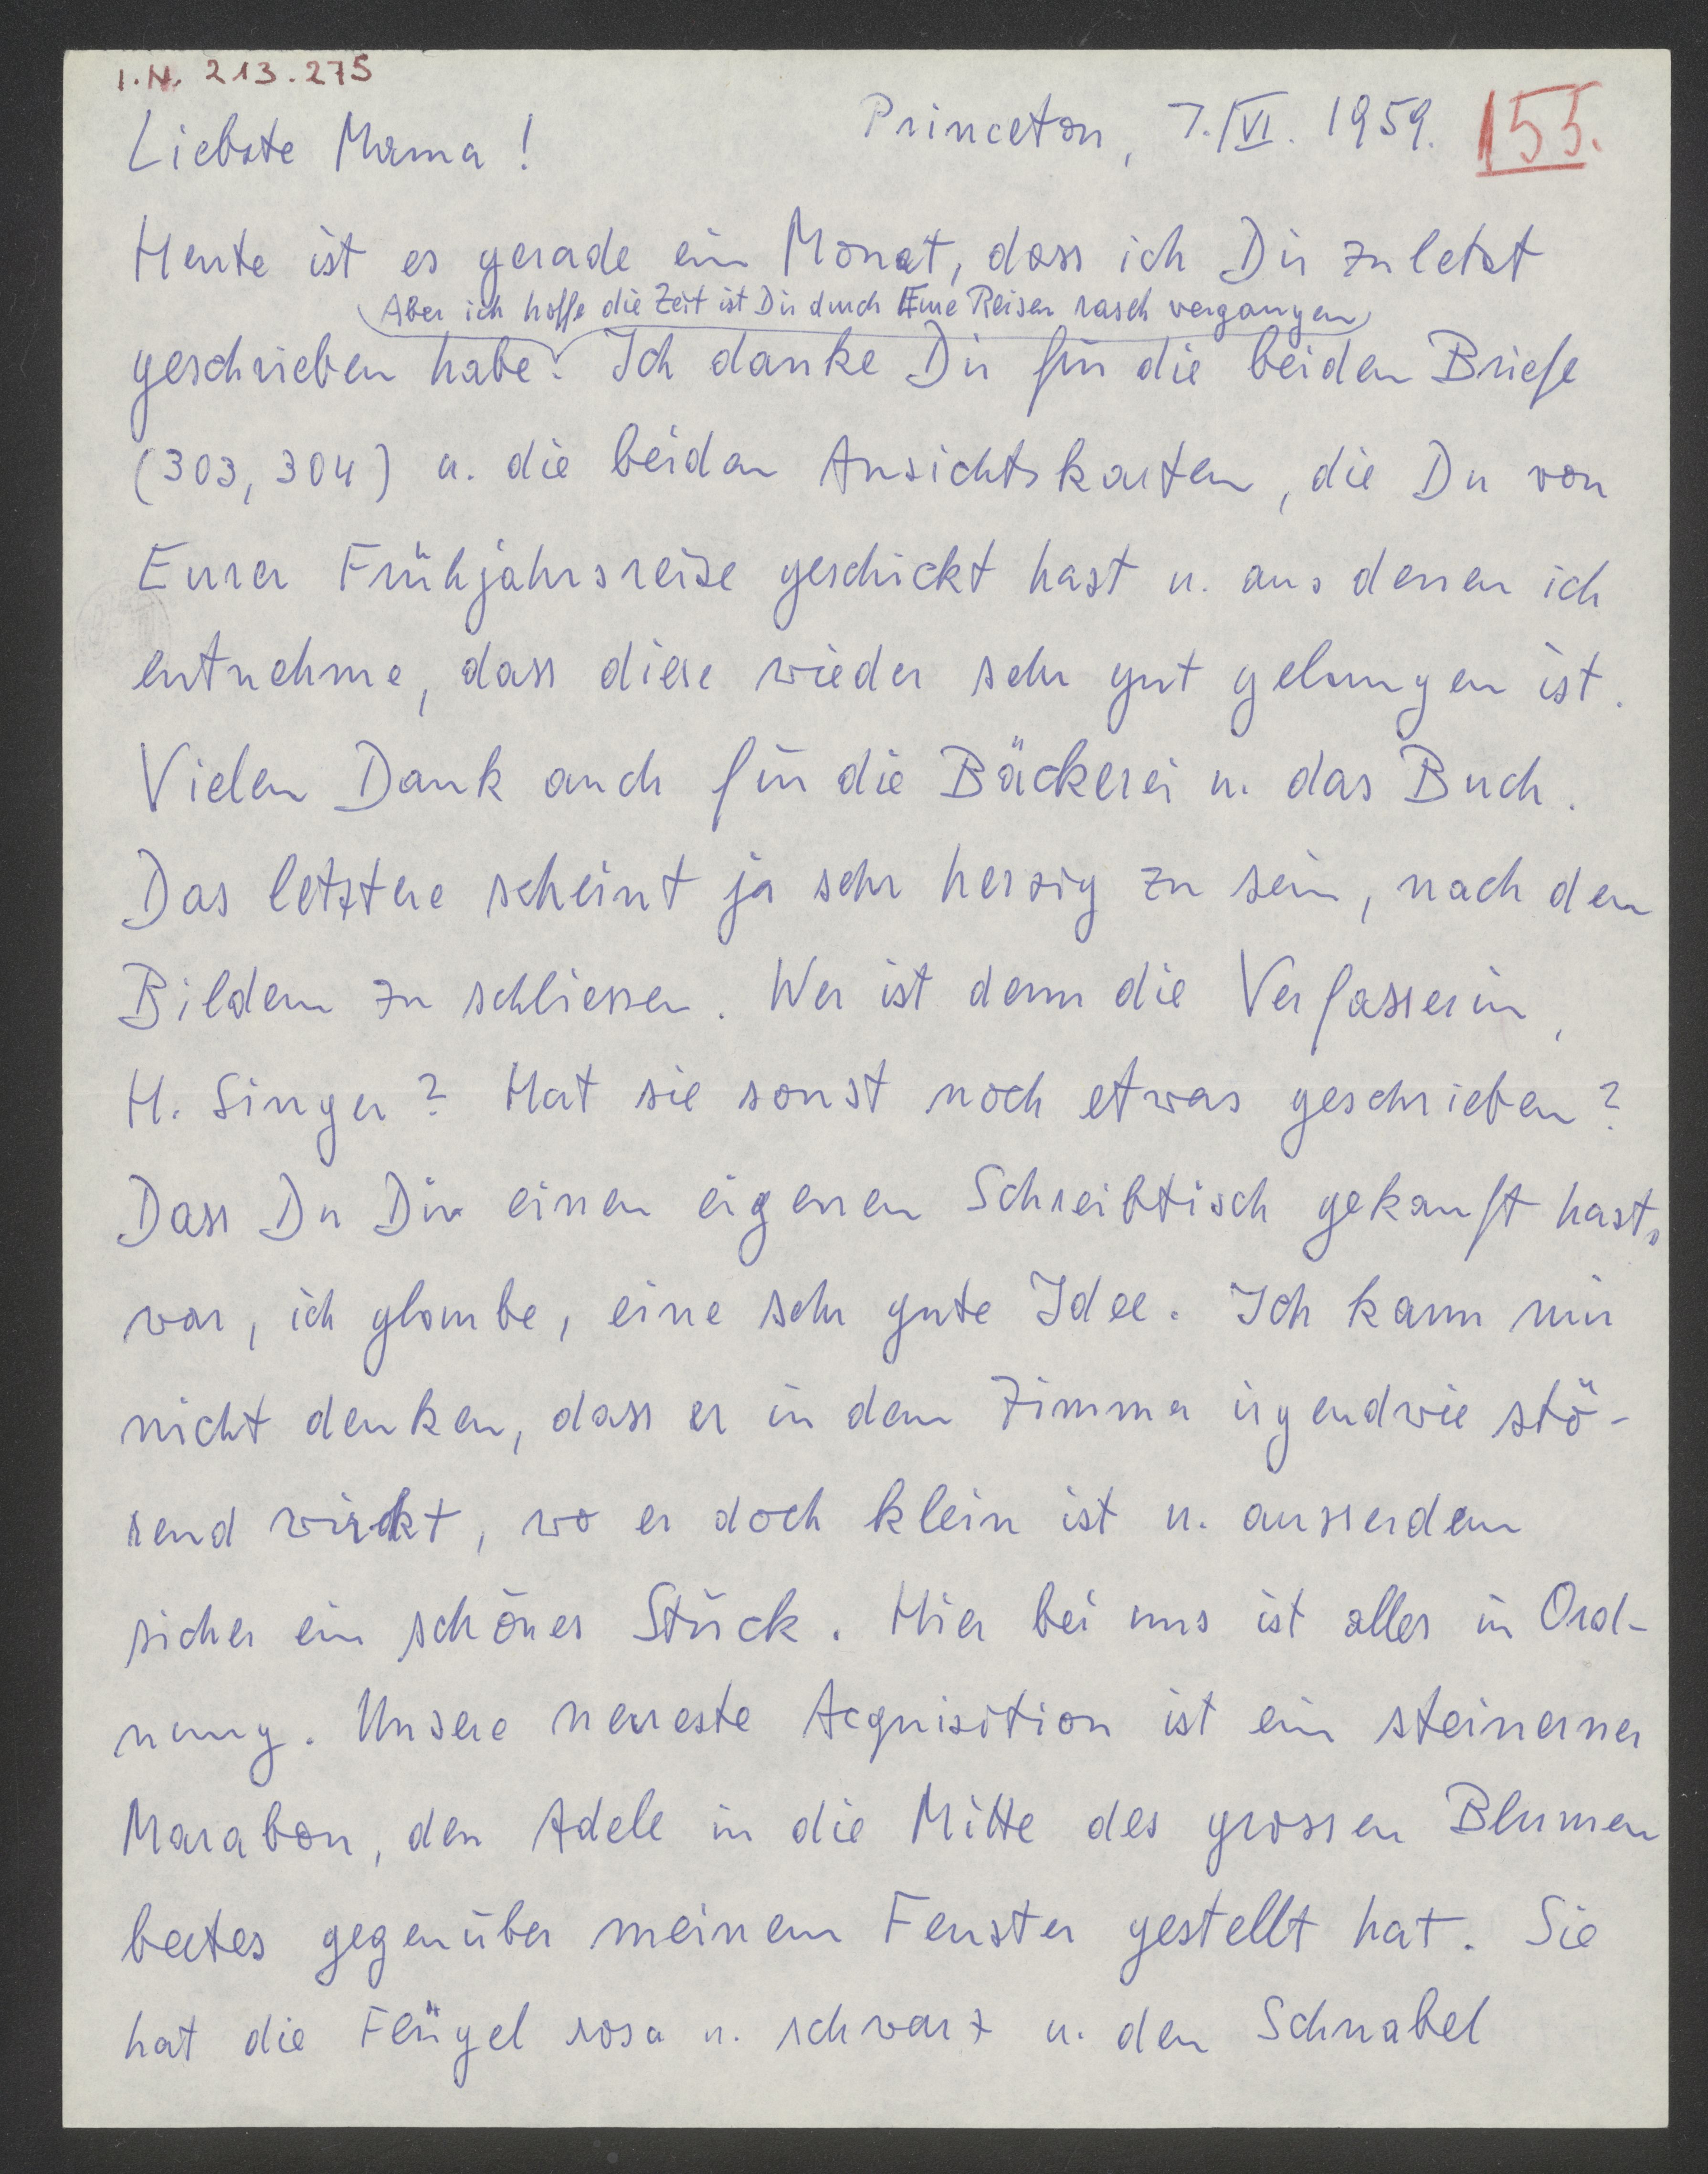 I.N. 213.275
Princeton, 7./VI. 1959. 155.
Liebste Mama!
Heute ist es gerade ein Monat, dass ich Dir zuletzt
Aber ich hoffe die Zeit ist Dir durch Eure Reisen rasch vergangen
geschrieben habe. Ich danke Dir für die beiden Briefe
(303, 304) u. die beiden Ansichtskarten, die Du von
Eurer Frühjahrsreise geschickt hast u. aus denen ich
entnehme, dass diese wieder sehr gut gelungen ist.
Vielen Dank auch für die Bäckerei u. das Buch.
Das letztere scheint ja sehr herzig zu sein, nach den
Bildern zu schliessen. Wer ist denn die Verfasserin,
H. Singer? Hat sie sonst noch etwas geschrieben?
Dass Du Dir einen eigenen Schreibtisch gekauft hast,
war, ich glaube, eine sehr gute Idee. Ich kann mir
nicht denken, dass er in dem Zimmer irgendwie stö-
rend wirkt, wo er doch klein ist u. ausserdem
sicher ein schönes Stück. Hier bei uns ist alles in Ord-
nung. Unsere neueste Acquisition ist ein steinerner
Marabou, den Adele in die Mitte des grossen Blumen
beetes gegenüber meinem Fenster gestellt hat. Sie
hat die Flügel rosa u. schwarz u. den Schnabel